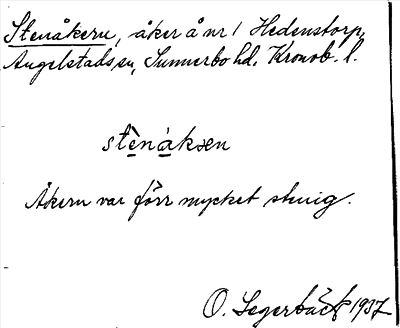 Stenåkern, åker å nr 1 Hedenstorp,
Angelstads sn, Sunnerbo hd, Kronob. l.
stènáksen
Åkern var förr mycket stenig.
O. Segerbäck 1937